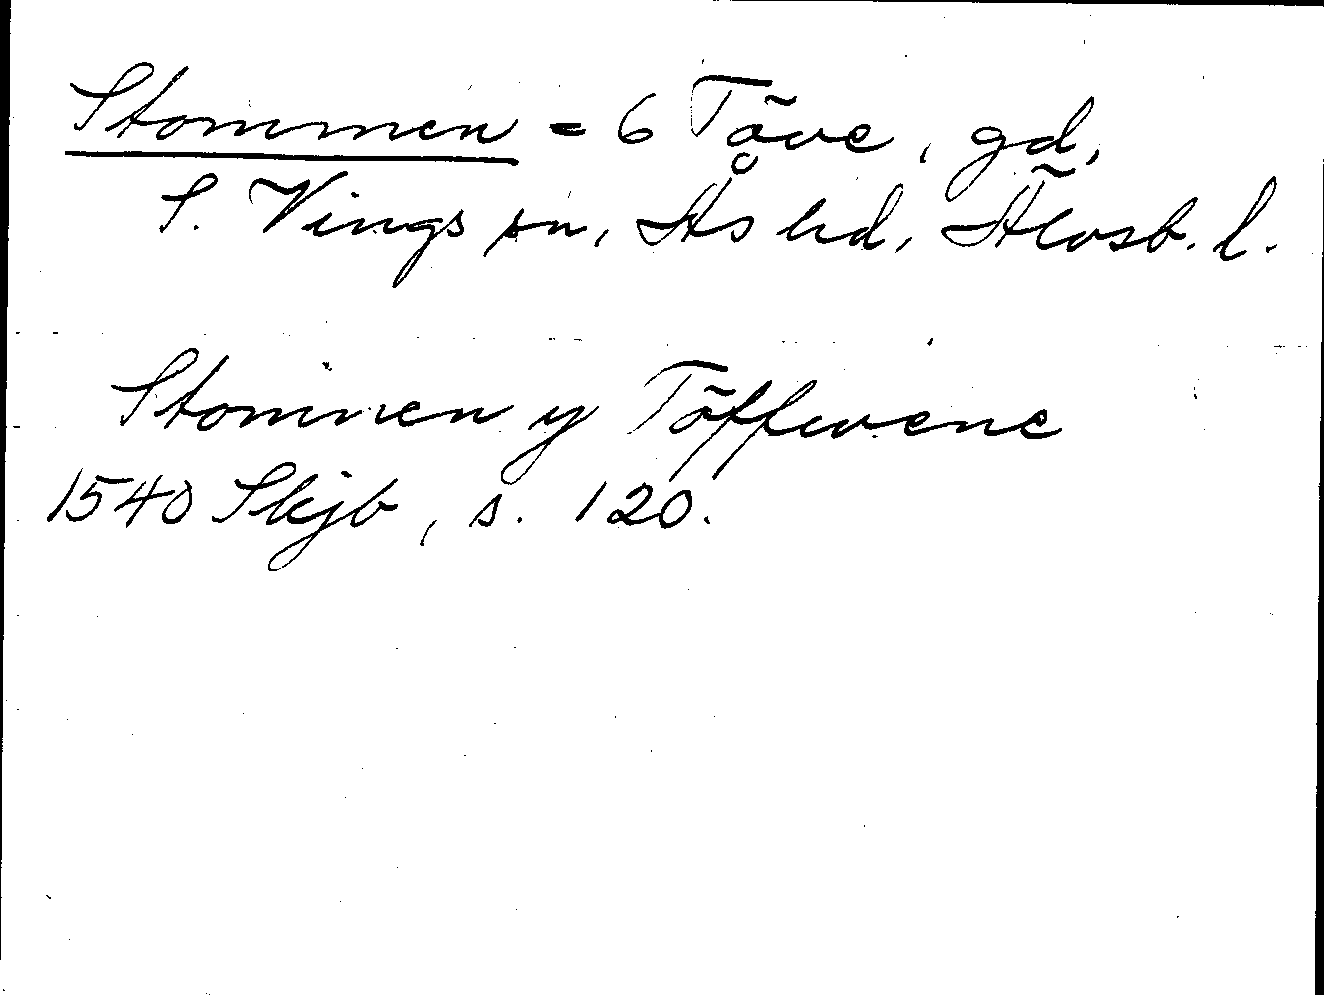 Stommen = 6 Töve, gd,
S. Vings sn, Ås hd, Älvsb. l.
Stommen y Töffwene
1540 Skjb, s. 120.